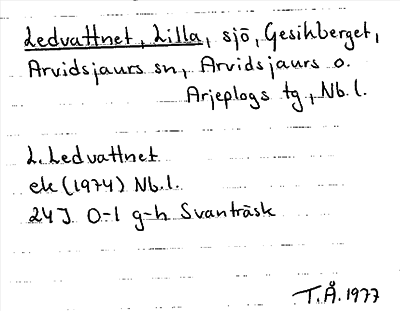 Ledvattnet, Lilla, sjö, Gesihberget,
Arvidsjaurs sn, Arvidsjaurs o.
Arjeplogs tg, Nb.l.
L. Ledvattnet
ek (1974) Nb.l.
24J 0-1 g-h Svanträsk
T.Å. 1977